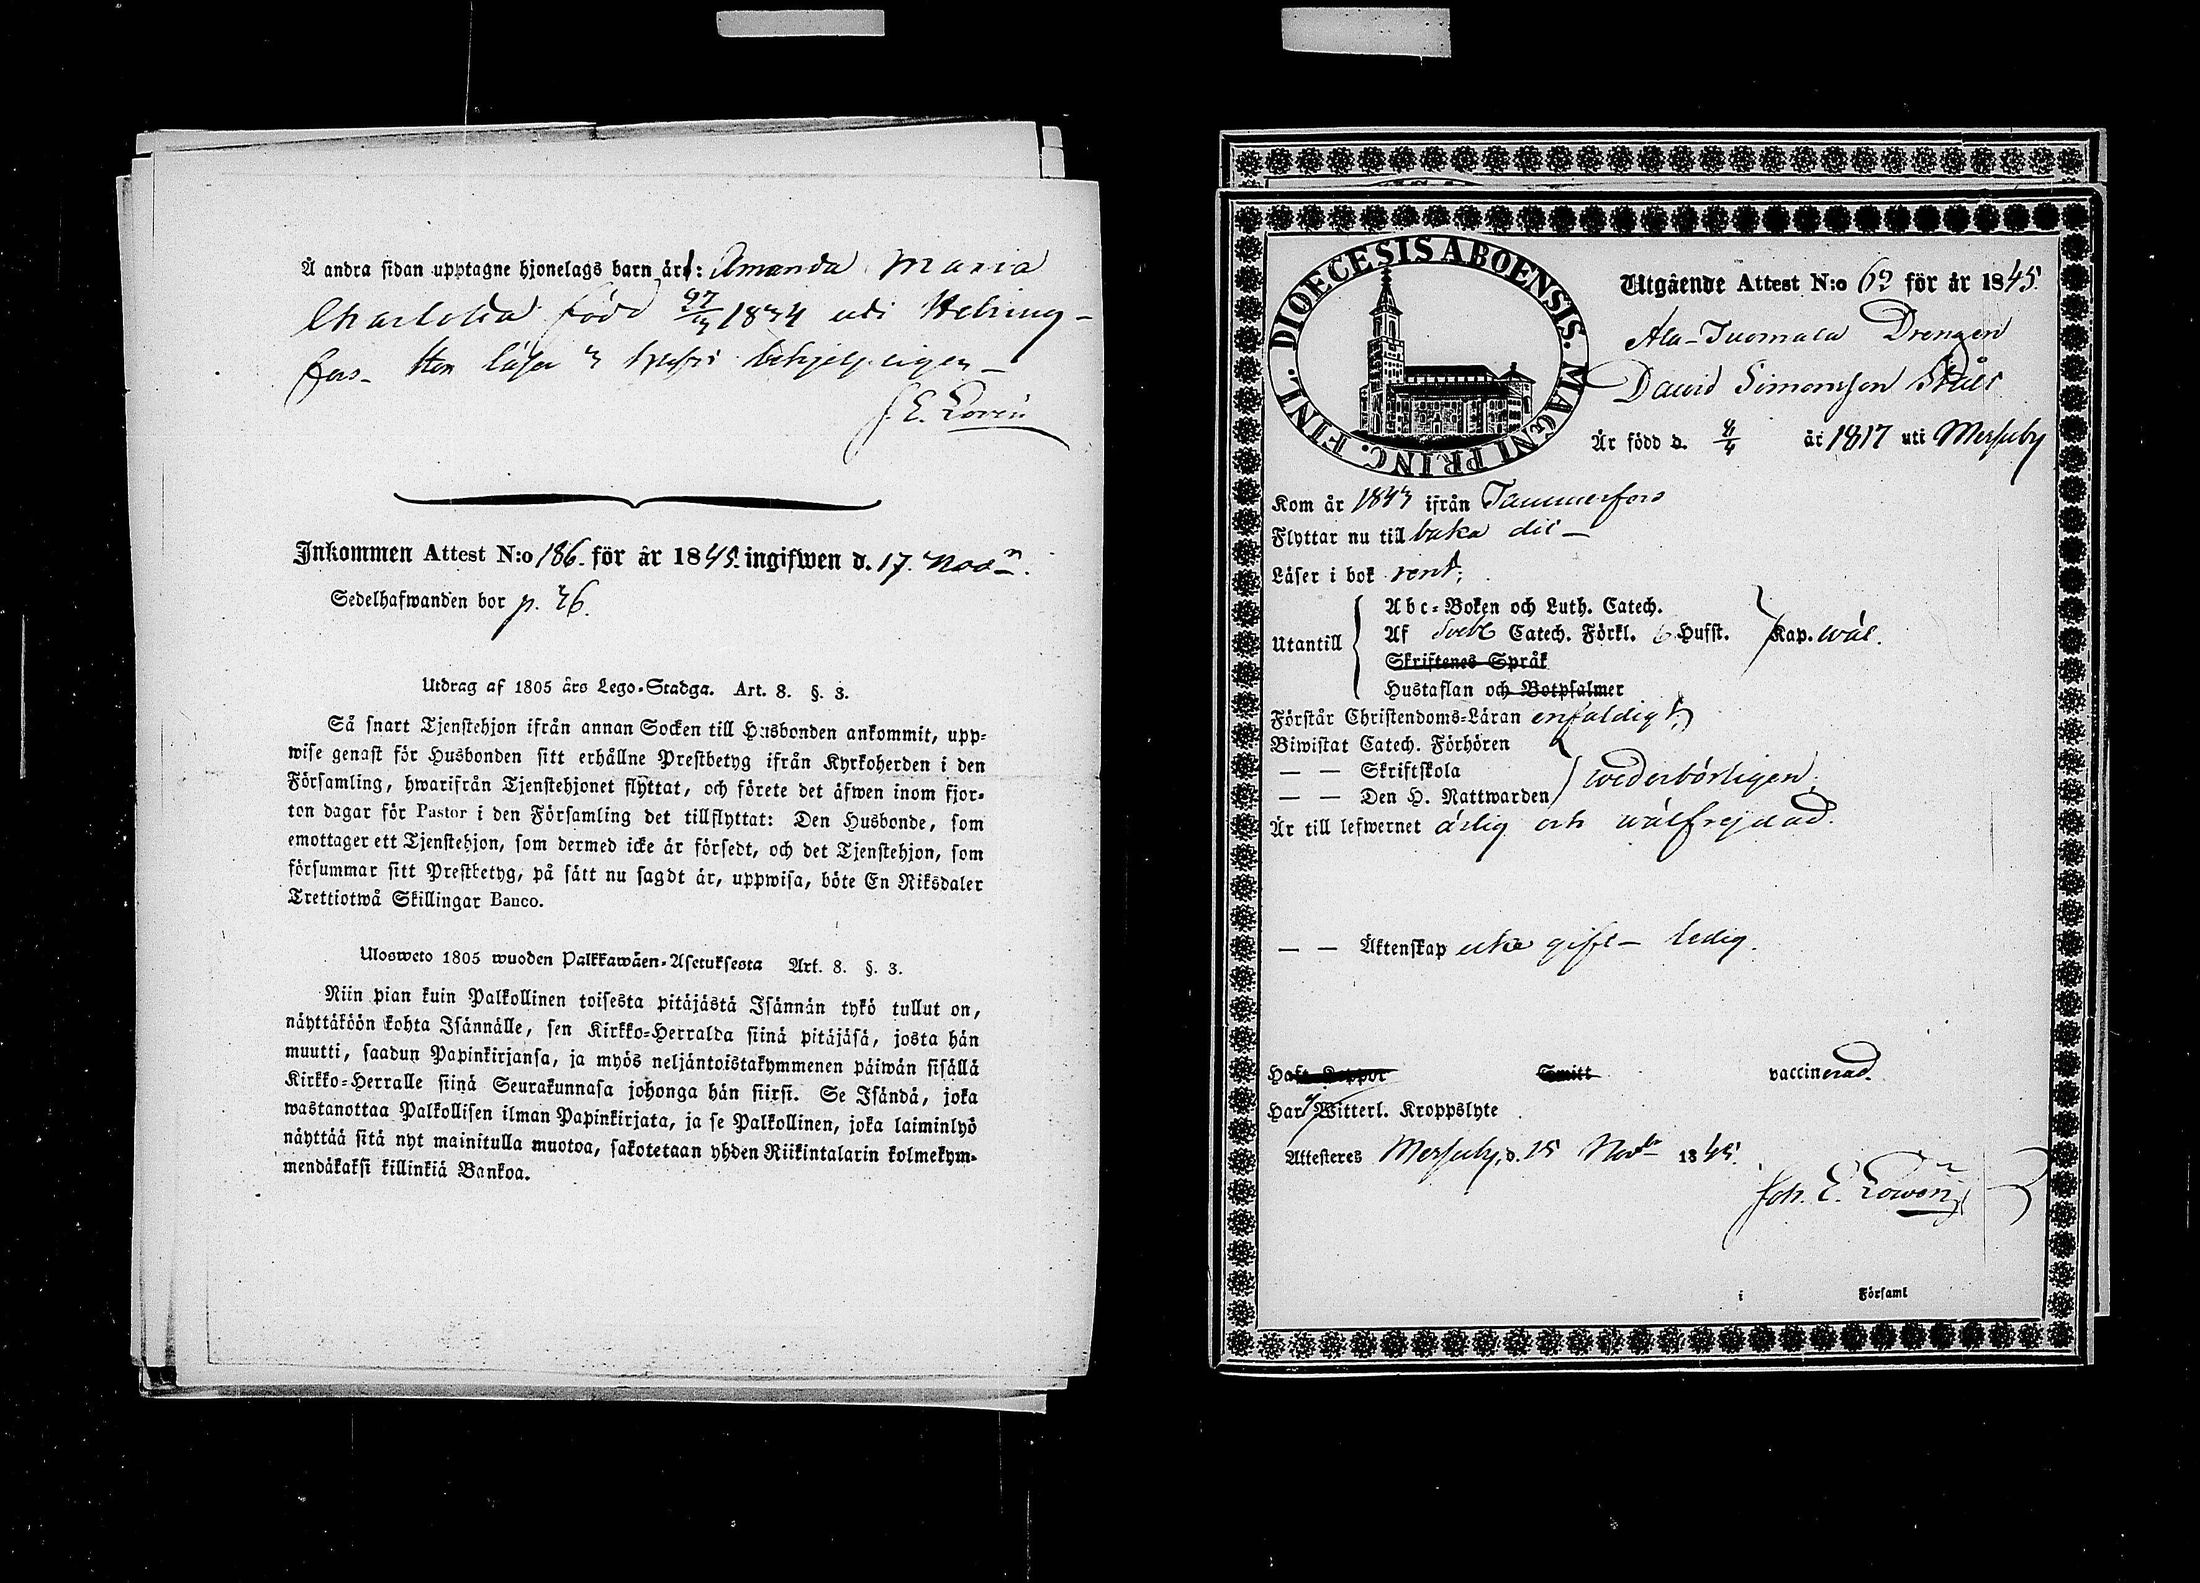 Å andra sidan upptagne hjonelags barn är: Amanda Maria
Charlotta född 27/3 1834 uti Helsing-
fors. Hon läser
J. E. Lovén
Inkommen Attest N:o 186. för år 1845. ingifwen d. 17. Nov:n.
Sedelhafwanden bor p. 36.
Utdrag af 1805 års Lego-Stadga. Art. 8. §. 3.
Så snart Tjenstehjon ifrån annan Socken till Husbonden ankommit, upp-
wise genast för Husbonden sitt erhållne Prestbetyg ifrån Kyrkoherden i den
Församling, hwarifrån Tjenstehjonet flyttat, och förete det äfwen inom fjor-
ton dagar för Pastor i den Församling det tillflyttat: Den Husbonde, som
emottager ett Tjenstehjon, som dermed icke är försedt, och det Tjenstehjon, som
försummar sitt Prestbetyg, på sätt nu sagdt är, uppwisa, böte En Riksdaler
Trettiotwå Skillingar Banco.
Ulosweto 1805 wuoden Palkkawäen-Asetuksesta Art. 8. §. 3.
Niin pian kuin Palkollinen toisesta pitäjästä Isännän tykö tullut on,
näyttäköön kohta Isännälle, sen Kirkko-Herralda siinä pitäjäsä, josta hän
muutti, saadun Papinkirjansa, ja myös neljäntoistakymmenen päiwän sisällä
Kirkko-Herralle siinä Seurakunnasa johonga hän siirsi. Se Isändä, joka
wastanottaa Palkollisen ilman Papinkirjata, ja se Palkollinen, joka laiminlyö
näyttää sitä nyt mainitulla muotoa, sakotetaan yhden Riikintalarin kolmekym-
mendäkaksi killinkiä Bankoa.
DIOECESIS ABOENSIS. MAGNI PRINC. FINL.
Utgående Attest N:o 62 för år 1845.
Ala-Tuomala Drengen
David Simonsson
Är född d. år 1817 uti Messuby
Kom år 1843 ifrån Tammerfors
Flyttar nu till baka dit
Läser i bok rent;
Utantill
Abc-Boken och Luth. Catech.
Af Svebl. Catech. Förkl. 6 Hufst. Kap. wäl.
Skriftenes Språk
Hustaflan och Botpsalmer
Förstår Christendoms-Läran enfaldigt;
Biwistat Catech. Förhören
— — Skriftskola
— — Den H. Nattwarden wederbörligen;
Är till lefwernet ärlig och wälfrejdad.
— — Äktenskap icke gift – ledig.
Haft Koppor Smitt vaccinerad.
Har ej Witterl. Kroppslyte
Attesteres Messuby, d. 15 Nov:br 1845.
Joh. E. Lowén
i Församl